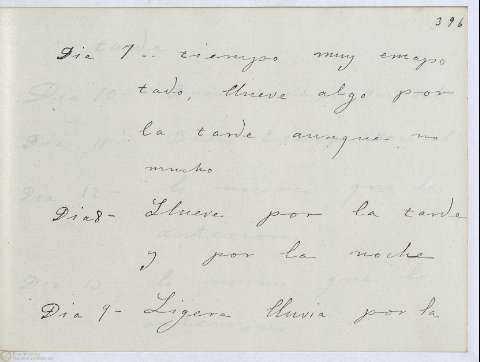 396
Dia 7.. tiempo muy encapo
tado, llueve algo por
la tarde aunque no
mucho
Dia 8- Llueve por la tarde
y por la noche
Dia 9- Ligera lluvia por la